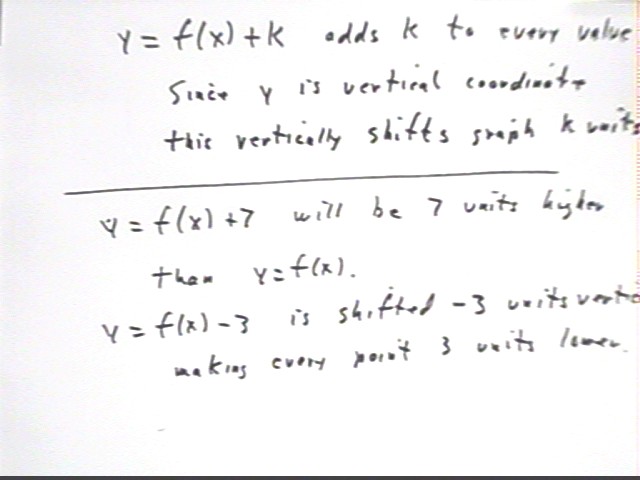 y = f(x) + k adds k to every value
Since y is vertical coordinate
this vertically shifts graph k units
y = f(x) + 7 will be 7 units higher
than y = f(x).
y = f(x) - 3 is shifted -3 units
making every point 3 units lower.